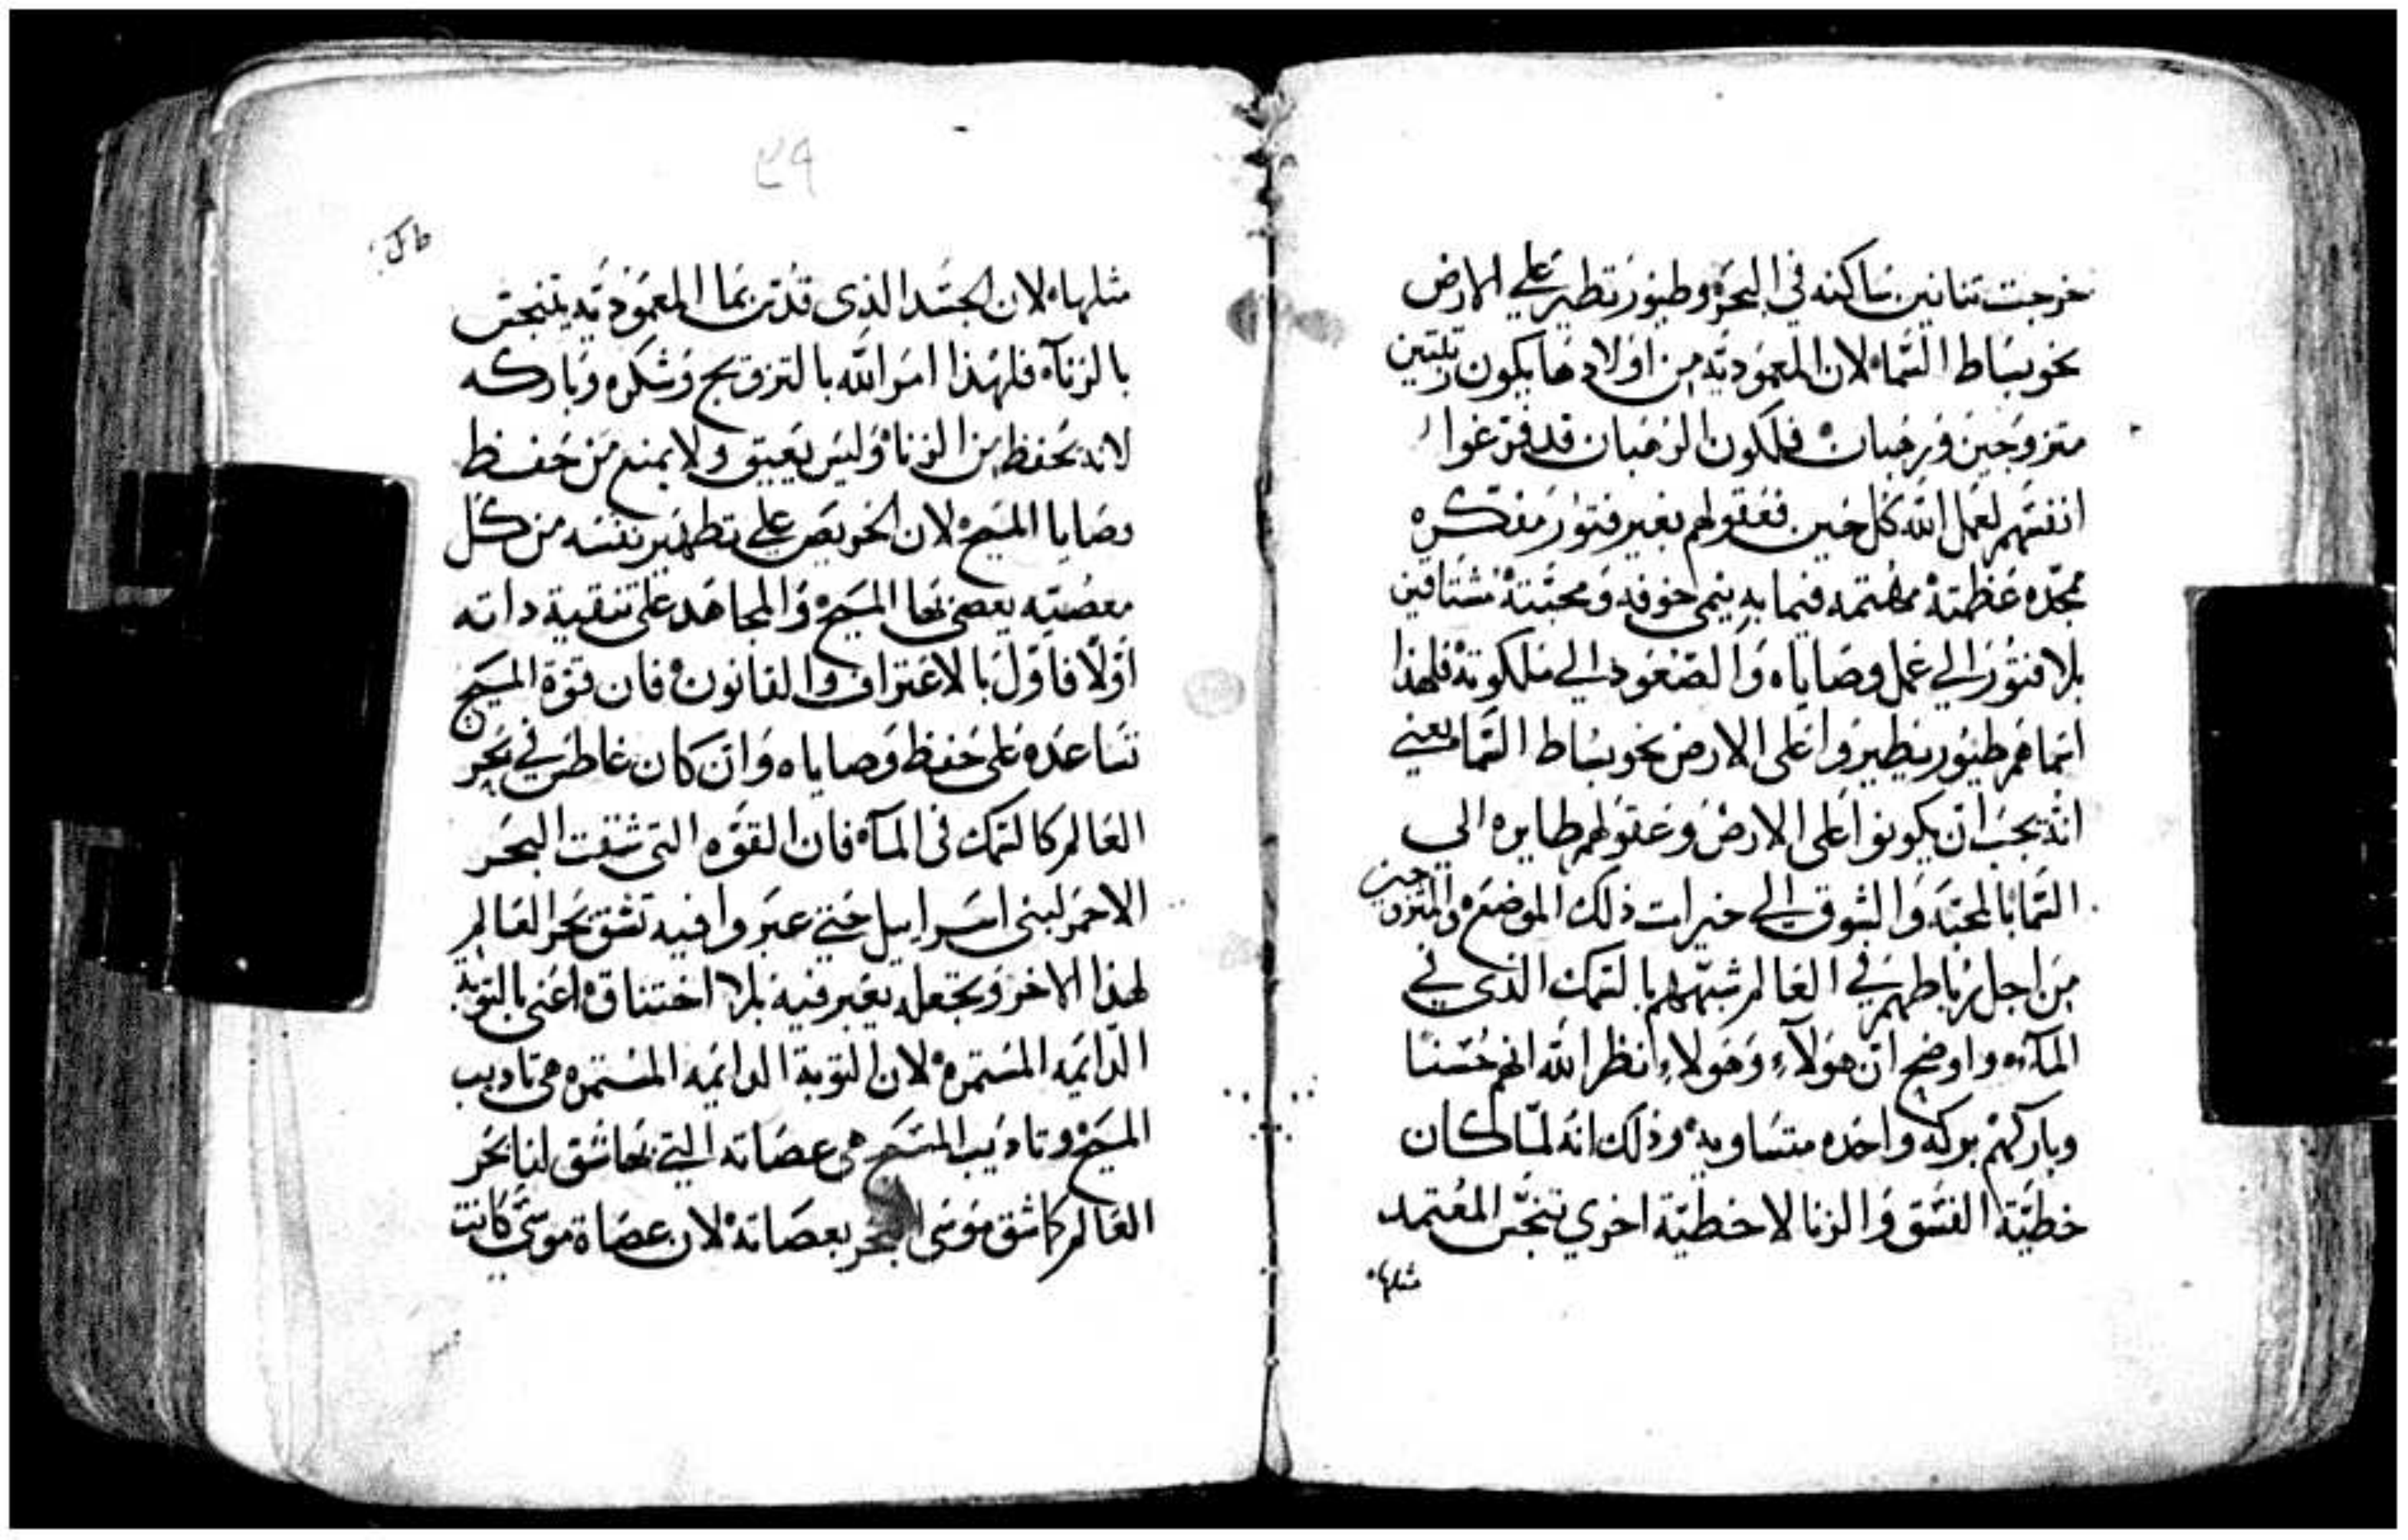 خرجت تنانين ساكنه في البحر وطيور تطير علي الارض
نحو بساط السماء لان المعموديه من اولادها يكون رتبتين
متزوجين ورهبان فلكون الرهبان قد فرغوا
انفسهم لعمل الله كل حين فعقولهم بغير فتور مفكره
مجده عظمته مهتمه فيما به ينمي خوفه ومحبته مشتاقين
بلا فتور الي عمل وصاياه والصعود الي ملكوته فلهذا
انما هم طيور يطيروا على الارض نحو بساط السماء يعني
انه يجب ان يكونوا على الارض وعقولهم طايره الي
السما بالمحبه والشوق الي خيرات ذلك الموضع والمتزوجين
من اجل رباطهم في العالم شبههم بالسمك الذي في
المآء واوضح ان هولآء وهولاء نظر الله انهم حسنا
وباركهم بركه واحده متساويه وذلك انه لما كان
خطيّة الفسق والزنا لا خطيّة اخري تنجس المعتمد
مثلها
٤٩
مثلها لان الجسد الذي قدس بما المعموديه يتنجس
بالزنآء فلهذا امر الله بالتزويج وشكره وباركه
لانه يحفظ من الزنا وليس يعيق ولا يمنع من حفظ
وصايا المسيح لان الحريص علي تطهير نفسه من كل
معصيته يعصي بها المسيح والمجاهد على تنقية داته
اولًا فاول بالاعتراف والقانون فان قوة المسيح
تساعده على حفظ وصاياه وان كان غاطس في بحر
العالم كالسمك في المآء فان القوه التي شقت البحر
الاحمر لبني اسراييل حتي عبروا فيه تشق بحر العالم
لهذا الاخر وتجعله يعبر فيه بلا اختناق اعني بالتوبه
الدايمه المستمره لان التوبة الدايمه المستمره هي تاديب
المسيح وتاديب المسيح هي عصاته التي بها شق لنا بحر
العالم كما شق موسى البحر بعصاته لان عصاة موسي كانت